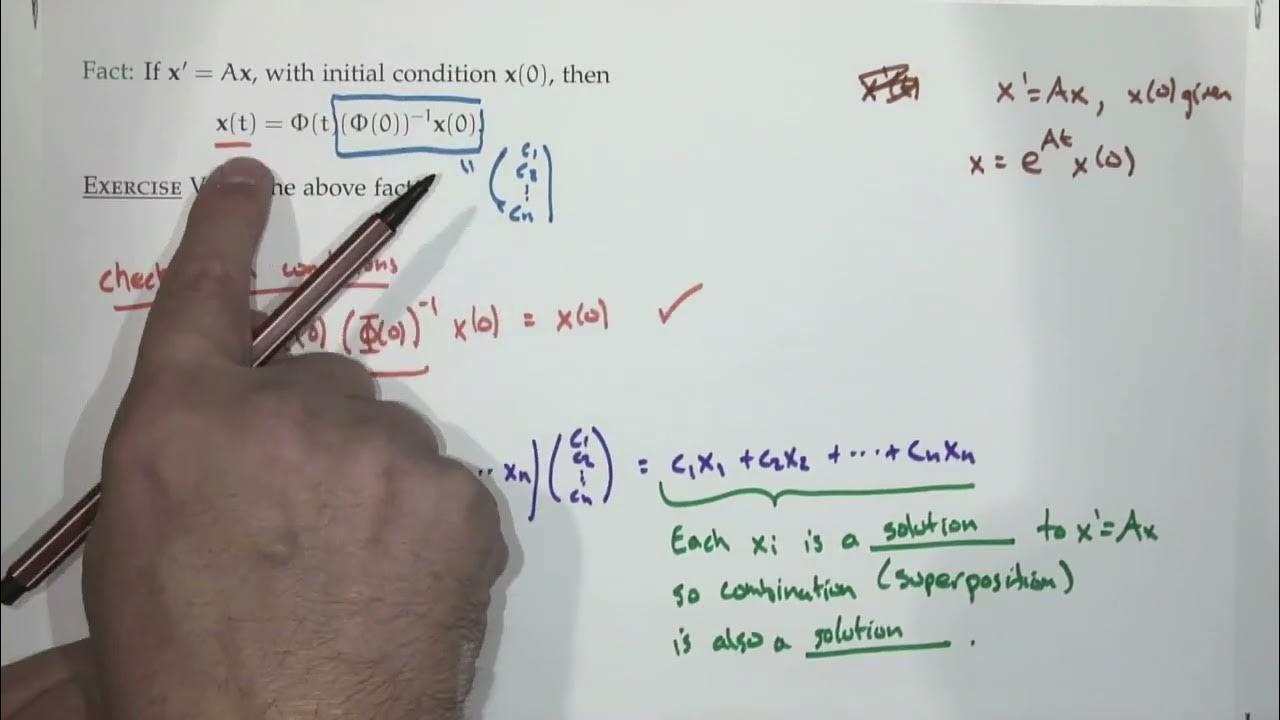 Fact: If x′ = Ax, with initial condition x(0), then
x(t) = Φ(t)(Φ(0))⁻¹x(0)
" (c₁ c₂ ⋮ cₙ)
EXERCISE the above fact
x' = Ax, x(0) given
x = e^{At} x(0)
(Φ(0))⁻¹ x(0) = x(0) ✓
·· xₙ) (c₁ c₂ ⋮ cₙ) = c₁x₁ + c₂x₂ + ··· + cₙxₙ
Each xᵢ is a solution to x' = Ax
so combination (superposition)
is also a solution .